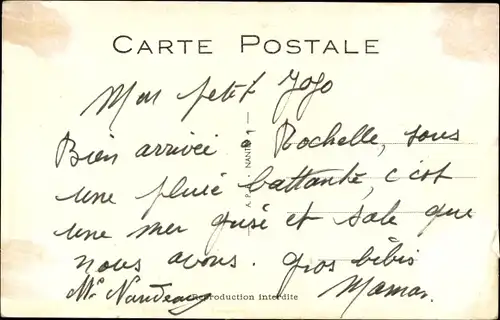 CARTE POSTALE
Mon petit Jojo
Bien arrivée à Rochelle, sous
une pluie battante, c'est
une mer grise et sale que
nous avons. Gros bébis
Maman.
Reproduction interdite
A. P. NANTES